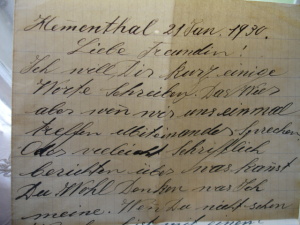 Hementhal. 21 Jan. 1930.
Liebe Freundin!
Ich will Dir kurz einige
Worte Schreiben. Das Wies
aber wen wir uns einmal
treffen miteinander sprechen
Oder vieleicht Schriftlich
berichten über was kanst
Du Wohl Denken was Ich
meine. Wen Du nicht schon